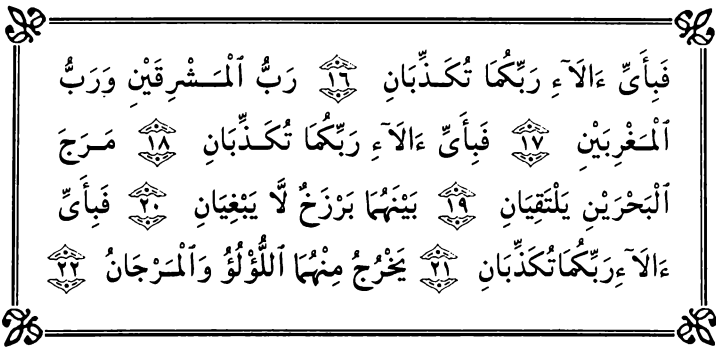 فَبِأَىِّ ءَالَآءِ رَبِّكُمَا تُكَذِّبَانِ ١٦ رَبُّ ٱلْمَشْرِقَيْنِ وَرَبُّ
ٱلْمَغْرِبَيْنِ ١٧ فَبِأَىِّ ءَالَآءِ رَبِّكُمَا تُكَذِّبَانِ ١٨ مَرَجَ
ٱلْبَحْرَيْنِ يَلْتَقِيَانِ ١٩ بَيْنَهُمَا بَرْزَخٌ لَّا يَبْغِيَانِ ٢٠ فَبِأَىِّ
ءَالَآءِ رَبِّكُمَا تُكَذِّبَانِ ٢١ يَخْرُجُ مِنْهُمَا ٱللُّؤْلُؤُ وَٱلْمَرْجَانُ ٢٢